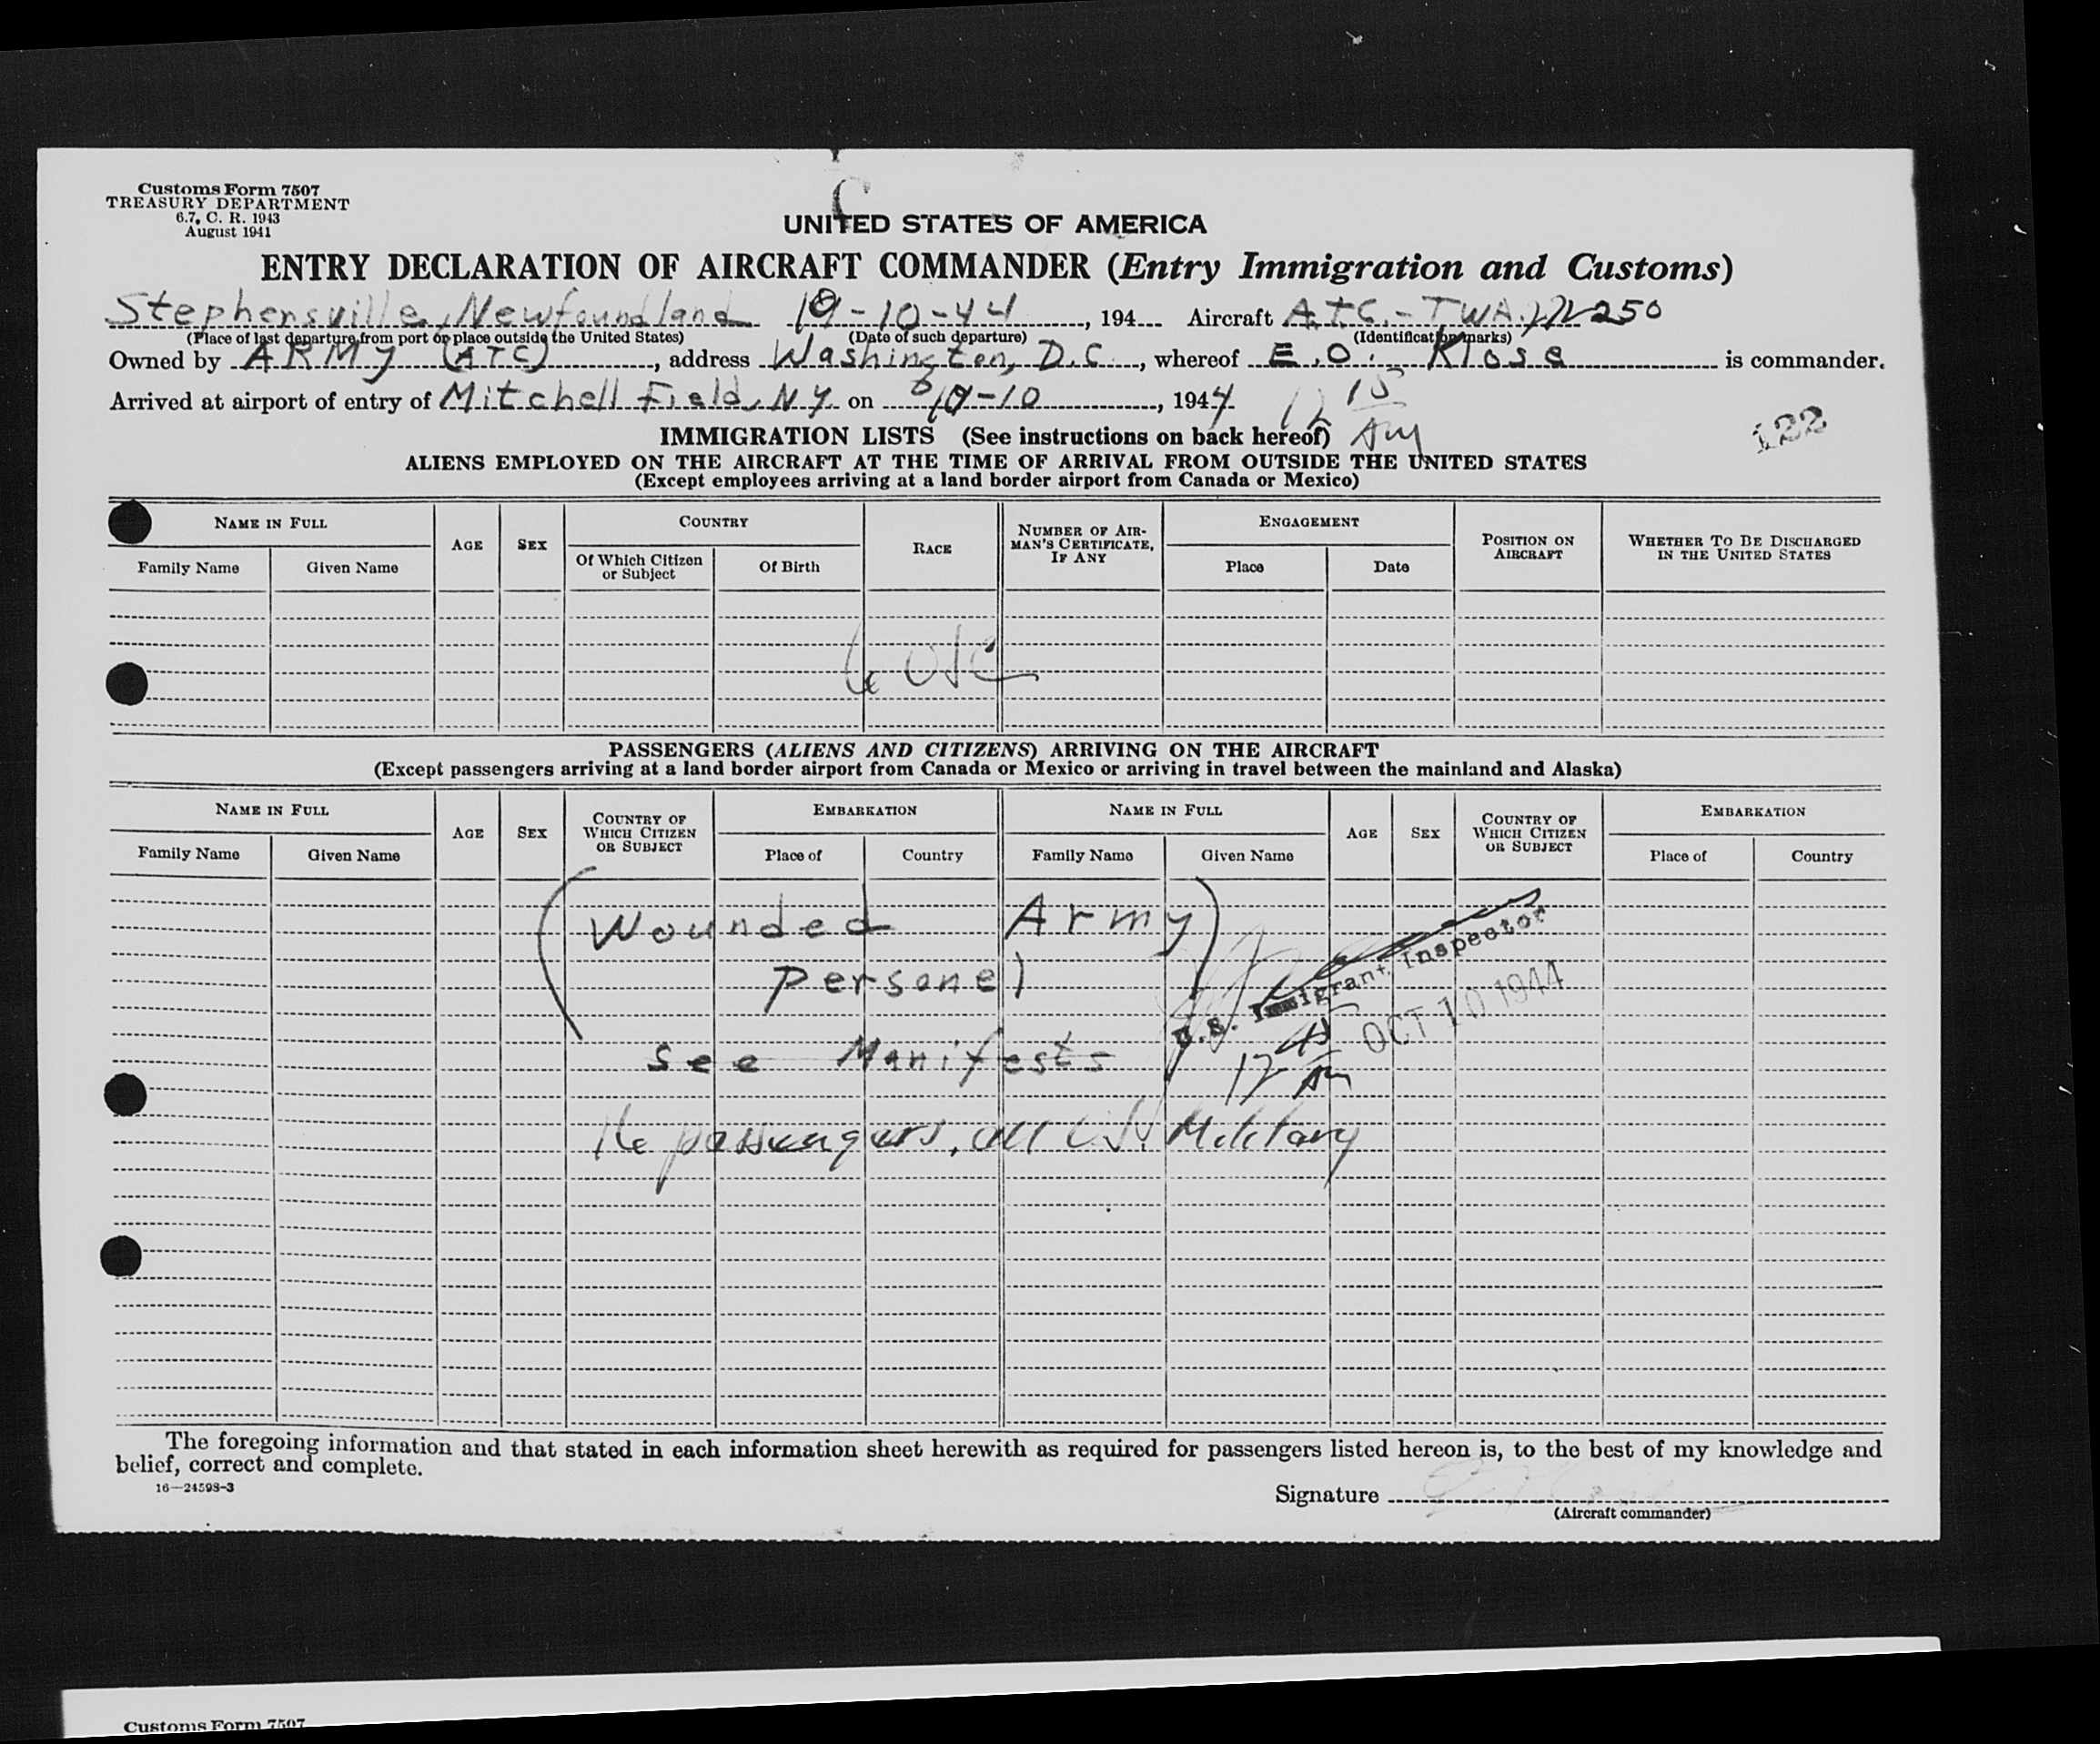 Customs Form 7507
TREASURY DEPARTMENT
6.7, C. R. 1943
August 1941
UNITED STATES OF AMERICA
ENTRY DECLARATION OF AIRCRAFT COMMANDER (Entry Immigration and Customs)
Stephensville, Newfoundland 19-10-44, 194 Aircraft A.T.C.-TWA. 250
(Place of last departure from port or place outside the United States) (Date of such departure) (Identification marks)
Owned by ARMY (ATC), address Washington, D.C., whereof E.O. Klose is commander.
Arrived at airport of entry of Mitchell Field, NY on 10-10, 1944 12 15 AM
122
IMMIGRATION LISTS (See instructions on back hereof)
ALIENS EMPLOYED ON THE AIRCRAFT AT THE TIME OF ARRIVAL FROM OUTSIDE THE UNITED STATES
(Except employees arriving at a land border airport from Canada or Mexico)
NAME IN FULL AGE SEX COUNTRY RACE NUMBER OF AIRMAN'S CERTIFICATE, IF ANY ENGAGEMENT POSITION ON AIRCRAFT WHETHER TO BE DISCHARGED IN THE UNITED STATES
Family Name Given Name Of Which Citizen or Subject Of Birth Place Date
6 USC
PASSENGERS (ALIENS AND CITIZENS) ARRIVING ON THE AIRCRAFT
(Except passengers arriving at a land border airport from Canada or Mexico or arriving in travel between the mainland and Alaska)
NAME IN FULL AGE SEX COUNTRY OF WHICH CITIZEN OR SUBJECT EMBARKATION NAME IN FULL AGE SEX COUNTRY OF WHICH CITIZEN OR SUBJECT EMBARKATION
Family Name Given Name Place of Country Family Name Given Name Place of Country
(Wounded Army)
Personel
U.S. Immigrant Inspector
OCT 10 1944
See Manifests
12 45 AM
16 passengers, all U.S. Military
The foregoing information and that stated in each information sheet herewith as required for passengers listed hereon is, to the best of my knowledge and
belief, correct and complete.
16—24598-3
Signature
(Aircraft commander)
Customs Form 7507